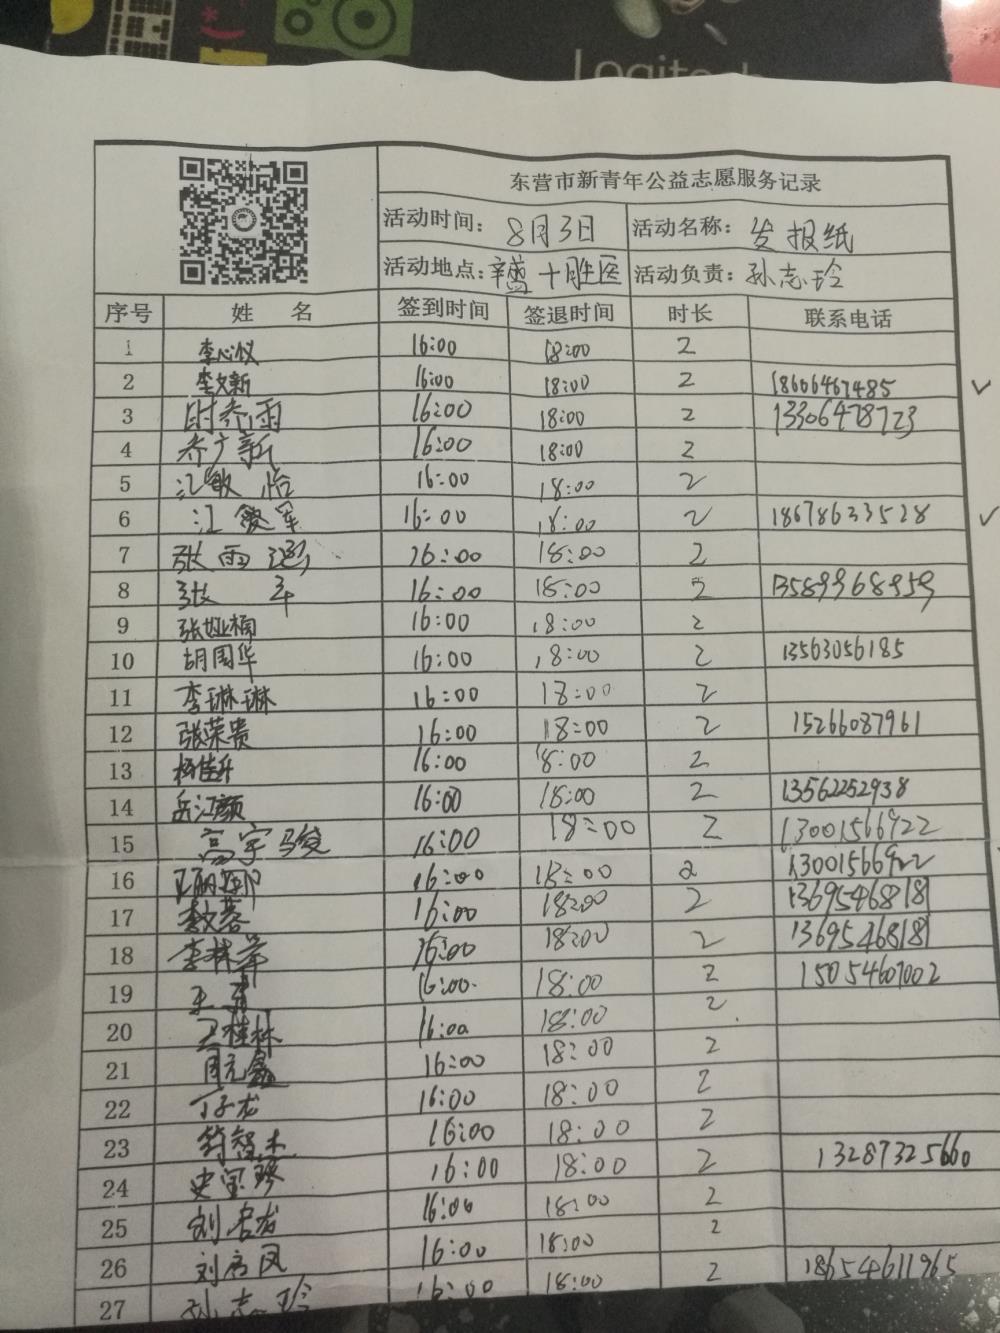 Logitech
东营市新青年公益志愿服务记录
活动时间： 8月3日 活动名称： 发报纸
活动地点： 十胜医 活动负责： 孙志玲
序号 姓 名 签到时间 签退时间 时长 联系电话
1 李心仪 16:00 18:00 2
2 李文新 16:00 18:00 2 18606467485 ✓
3 时乔雨 16:00 18:00 2 13306478723
4 乔广新 16:00 18:00 2
5 江敏怡 16:00 18:00 2
6 江爱军 16:00 18:00 2 18678633528 ✓
7 张雨涵 16:00 18:00 2
8 张军 16:00 18:00 2 13589968959
9 张娅楠 16:00 18:00 2
10 胡国华 16:00 18:00 2 13563056185
11 李琳琳 16:00 18:00 2
12 张荣贵 16:00 18:00 2 15266087961
13 杨佳升 16:00 18:00 2
14 岳江颜 16:00 18:00 2 13562252938
15 高宇骏 16:00 18:00 2 13001566922
16 16:00 18:00 2 13001566922
17 16:00 18:00 2 13695468181
18 李林 16:00 18:00 2 13695468181
19 16:00 18:00 2 15054607002
20 王桂林 16:00 18:00 2
21 周元鑫 16:00 18:00 2
22 丁子龙 16:00 18:00 2
23 16:00 18:00 2
24 史宝琴 16:00 18:00 2 13287325660
25 刘君龙 16:00 18:00 2
26 刘启凤 16:00 18:00 2
27 孙志玲 16:00 18:00 2 18654611965